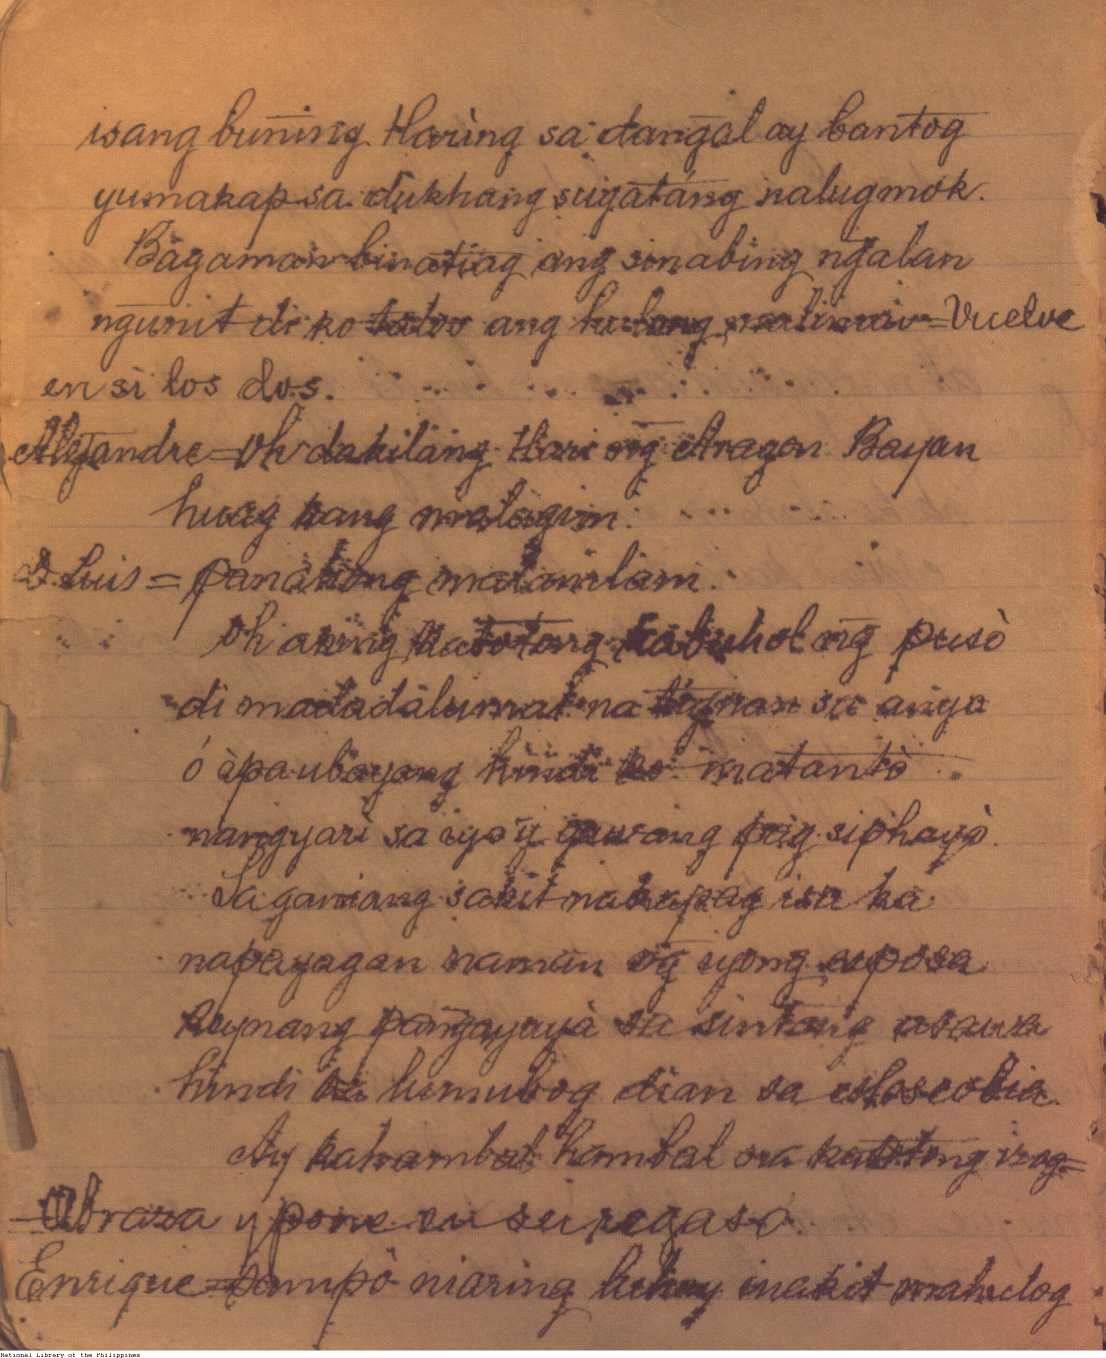 isang buning Haring sa dang̃al ay bantog
yumakap sa dukhang sugatang nalugmok.
Bagaman binatiag ang sinabing ng̃alan
ng̃unit di ko totoo ang hulang malimaw = Vuelve
en si los dos.
Alejandre = Oh dakilang Hari ng̃ Aragon Bayan
huag kang malagim.
D. Luis = panahong malamlam.
Oh aking katotong kabuhol ng̃ pusò
di madadalumat na tignan sa anyo
ó àpa ubayang hindi ko matantò
nangyari sa iyo'y gawang pag siphayò.
Sa ganiang sakit nakapag isa ka
napayagan naman ng̃ iyong esposa
kuynang pang̃ayayà sa sintang asawa
hindi ka lumubog dian sa
Ay kahambal hambal na katotong irog =
= Abraza y pone en su regaso.
Enrique = pampò niaring buhay inakit mahulog
National Library of the Philippines